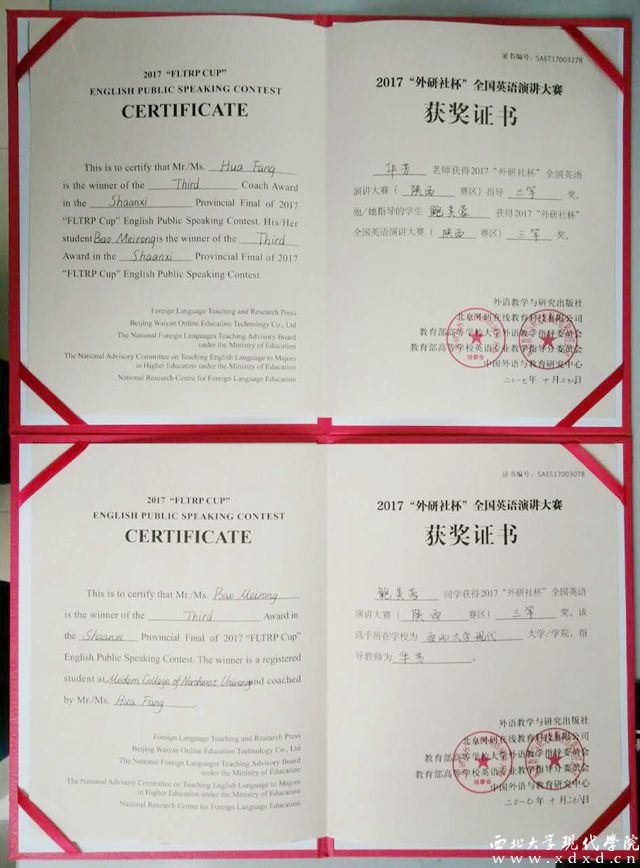 2017 “FLTRP CUP”
ENGLISH PUBLIC SPEAKING CONTEST
CERTIFICATE
This is to certify that Mr./Ms. Hua Fang
is the winner of the Third Coach Award
in the Shaanxi Provincial Final of 2017
“FLTRP Cup” English Public Speaking Contest. His/Her
student Bao Meirong is the winner of the Third
Award in the Shaanxi Provincial Final of 2017
“FLTRP Cup” English Public Speaking Contest.
Foreign Language Teaching and Research Press
Beijing Waiyan Online Education Technology Co., Ltd
The National Foreign Languages Teaching Advisory Board
under the Ministry of Education
The National Advisory Committee on Teaching English Language to Majors
in Higher Education under the Ministry of Education
National Research Centre for Foreign Language Education
证书编号：SAET17003278
2017“外研社杯”全国英语演讲大赛
获奖证书
华芳 老师获得2017“外研社杯”全国英语
演讲大赛（陕西 赛区）指导 三等 奖，
他/她指导的学生 鲍美蓉 获得2017“外研社杯”
全国英语演讲大赛（陕西 赛区）三等 奖。
外语教学与研究出版社
北京外研在线教育科技有限公司
教育部高等学校大学外语教学指导委员会
教育部高等学校英语专业教学指导分委员会
中国外语与教育研究中心
二〇一七年 十月 二十八日
组委会
2017 “FLTRP CUP”
ENGLISH PUBLIC SPEAKING CONTEST
CERTIFICATE
This is to certify that Mr./Ms. Bao Meirong
is the winner of the Third Award in
the Shaanxi Provincial Final of 2017 “FLTRP Cup”
English Public Speaking Contest. The winner is a registered
student at Modern College of Northwest University and coached
by Mr./Ms. Hua Fang.
Foreign Language Teaching and Research Press
Beijing Waiyan Online Education Technology Co., Ltd
The National Foreign Languages Teaching Advisory Board
under the Ministry of Education
The National Advisory Committee on Teaching English Language to Majors
in Higher Education under the Ministry of Education
National Research Centre for Foreign Language Education
证书编号：SAES17003078
2017“外研社杯”全国英语演讲大赛
获奖证书
鲍美蓉 同学获得2017“外研社杯”全国英语
演讲大赛（陕西 赛区）三等 奖，该
选手所在学校为 西北大学现代 大学/学院，指
导教师为 华芳 。
外语教学与研究出版社
北京外研在线教育科技有限公司
教育部高等学校大学外语教学指导委员会
教育部高等学校英语专业教学指导分委员会
中国外语与教育研究中心
二〇一七年 十月 二十八日
组委会
西北大学现代学院
www.xdxd.cn